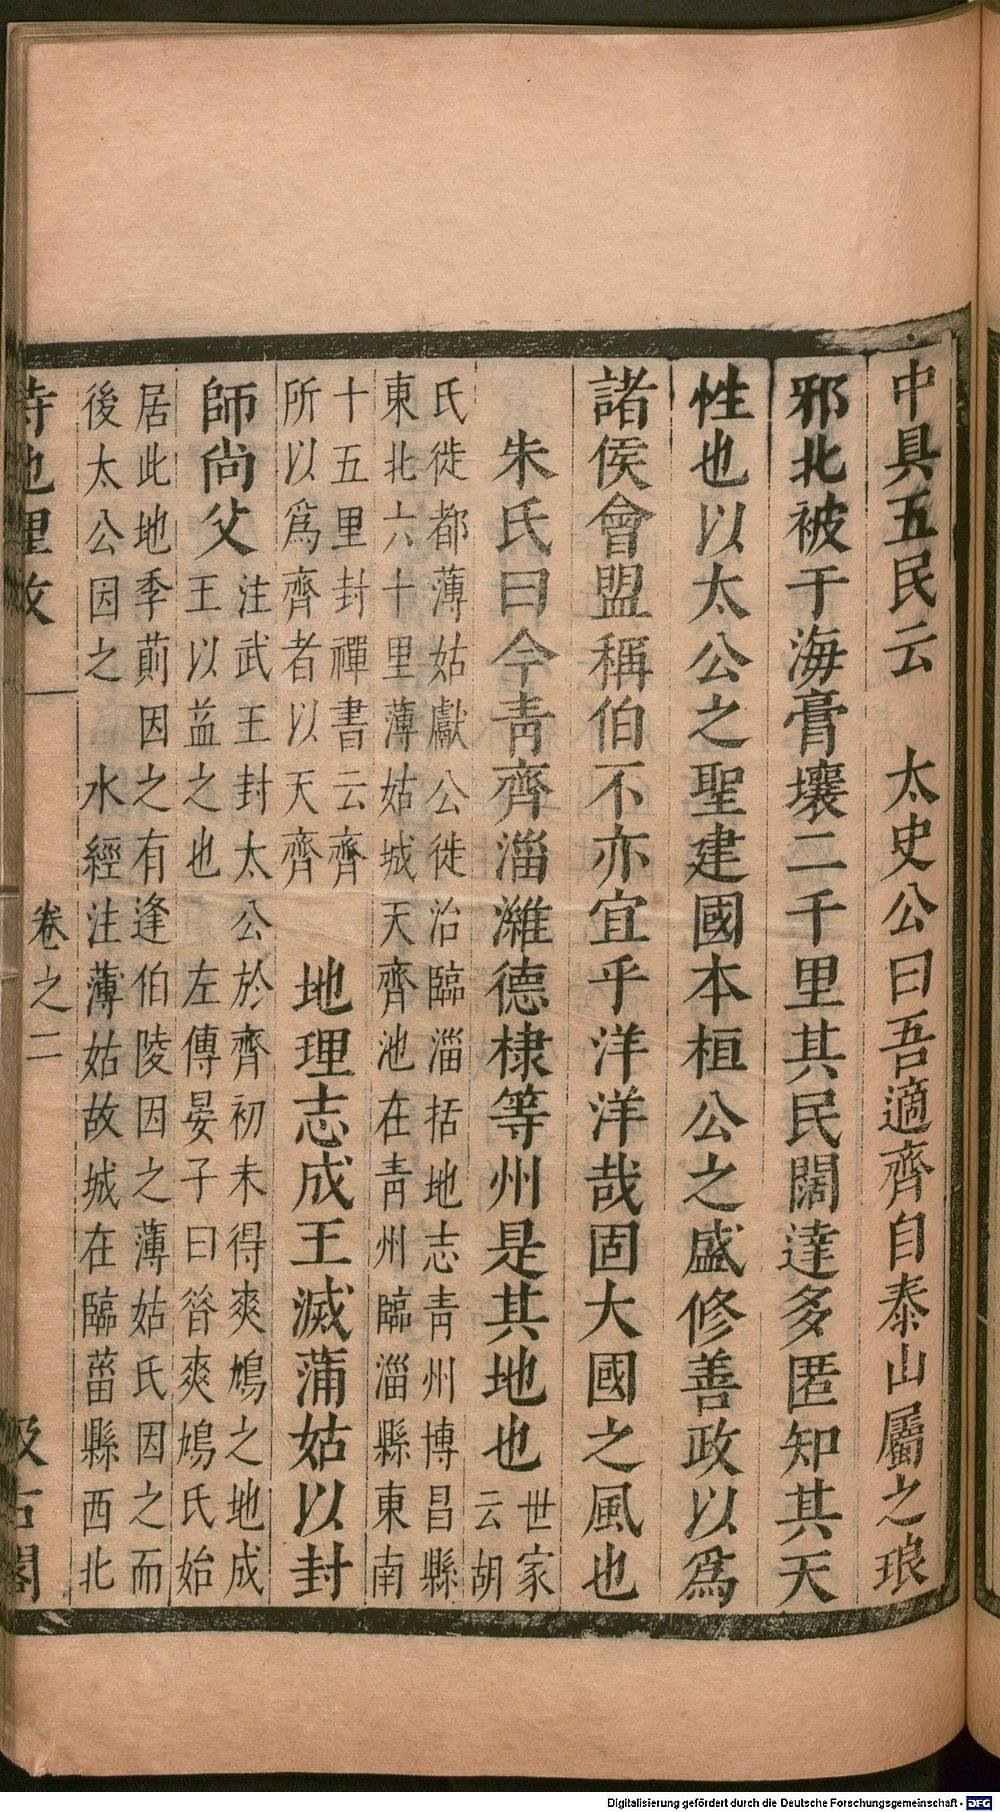 中具五民云　太史公曰吾適齊自泰山屬之琅
邪北被于海膏壤二千里其民闊達多匿知其天
性也以太公之聖建國本桓公之盛修善政以爲
諸侯會盟稱伯不亦宜乎洋洋哉固大國之風也
朱氏曰今青齊淄濰德棣等州是其地也
世家
云胡
氏徙都薄姑獻公徙治臨淄括地志青州博昌縣
東北六十里薄姑城天齊池在青州臨淄縣東南
十五里封禪書云齊
所以爲齊者以天齊
地理志成王滅蒲姑以封
師尚父
注武王封太公於齊初未得爽鳩之地成
王以益之也　左傳晏子曰昝爽鳩氏始
居此地季萴因之有逢伯陵因之薄姑氏因之而
後太公因之　水經注薄姑故城在臨菑縣西北
詩地理攷　卷之二　汲古閣
Digitalisierung gefördert durch die Deutsche Forschungsgemeinschaft - DFG